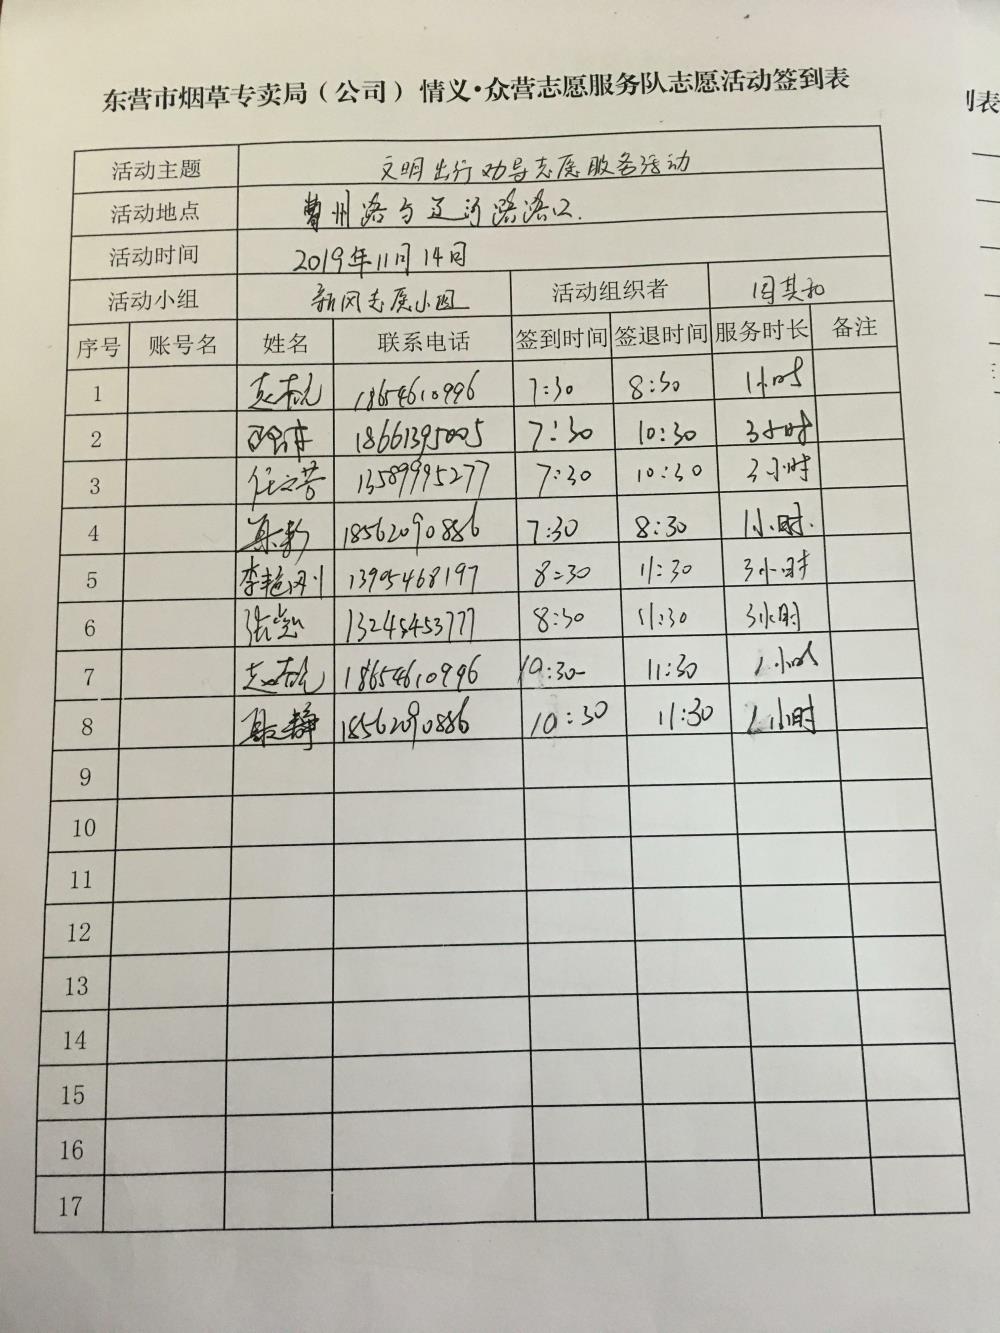 东营市烟草专卖局（公司）情义·众营志愿服务队志愿活动签到表
活动主题 文明出行劝导志愿服务活动
活动地点 曹州路与辽河路路口.
活动时间 2019年11月14日
活动小组 新风志愿小组 活动组织者
序号 账号名 姓名 联系电话 签到时间 签退时间 服务时长 备注
1 18654610996 7:30 8:30 1小时
2 18661395005 7:30 10:30 3小时
3 任之芳 13589995277 7:30 10:30 3小时
4 18562090886 7:30 8:30 1小时.
5 李艳刚 1395468197 8:30 11:30 3小时
6 13245453777 8:30 11:30 3小时
7 18654610996 10:30 11:30 1小时
8 聂静 18562090886 10:30 11:30 1小时
9
10
11
12
13
14
15
16
17
到表